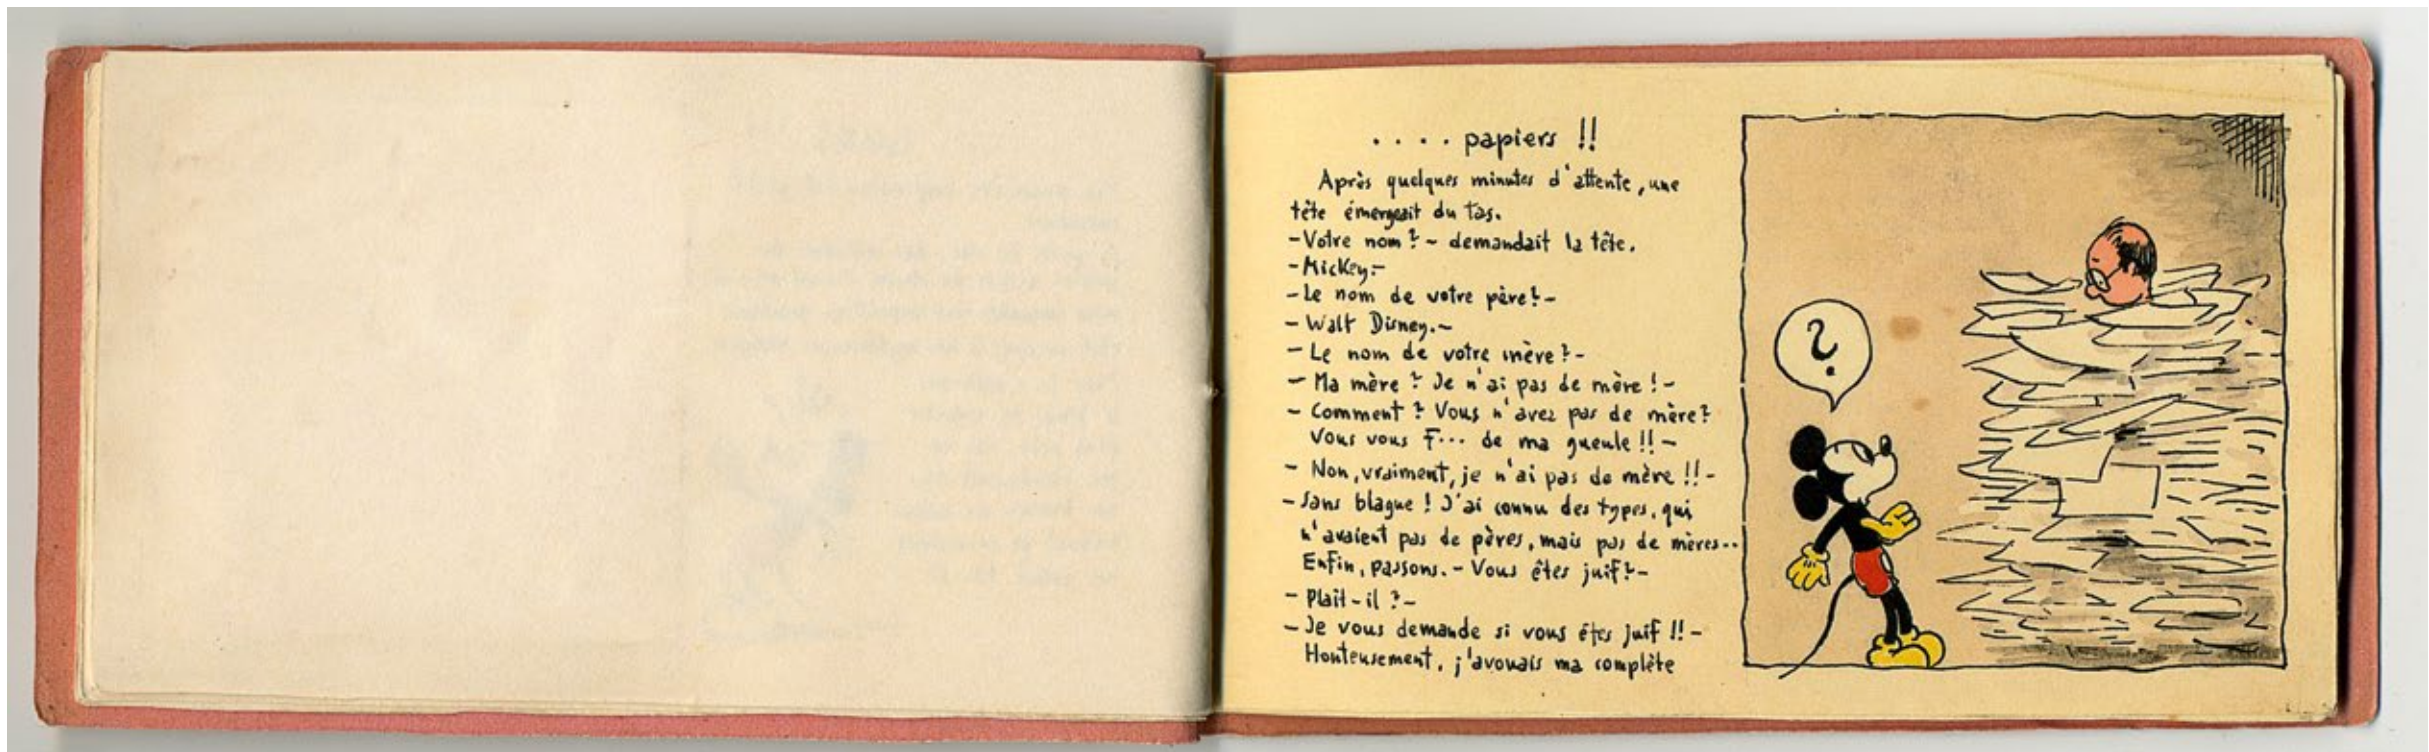 .... papiers !!
Après quelques minutes d'attente, une
tête émergeait du tas.
- Votre nom ? - demandait la tête.
- Mickey. -
- Le nom de votre père ? -
- Walt Disney. -
- Le nom de votre mère ? -
- Ma mère ? Je n'ai pas de mère ! -
- Comment ? Vous n'avez pas de mère ?
Vous vous F... de ma gueule !! -
- Non, vraiment, je n'ai pas de mère !! -
- Sans blague ! J'ai connu des types, qui
n'avaient pas de pères, mais pas de mères..
Enfin, passons. - Vous êtes juif ? -
- Plaît-il ? -
- Je vous demande si vous êtes juif !! -
Honteusement, j'avouais ma complète
?